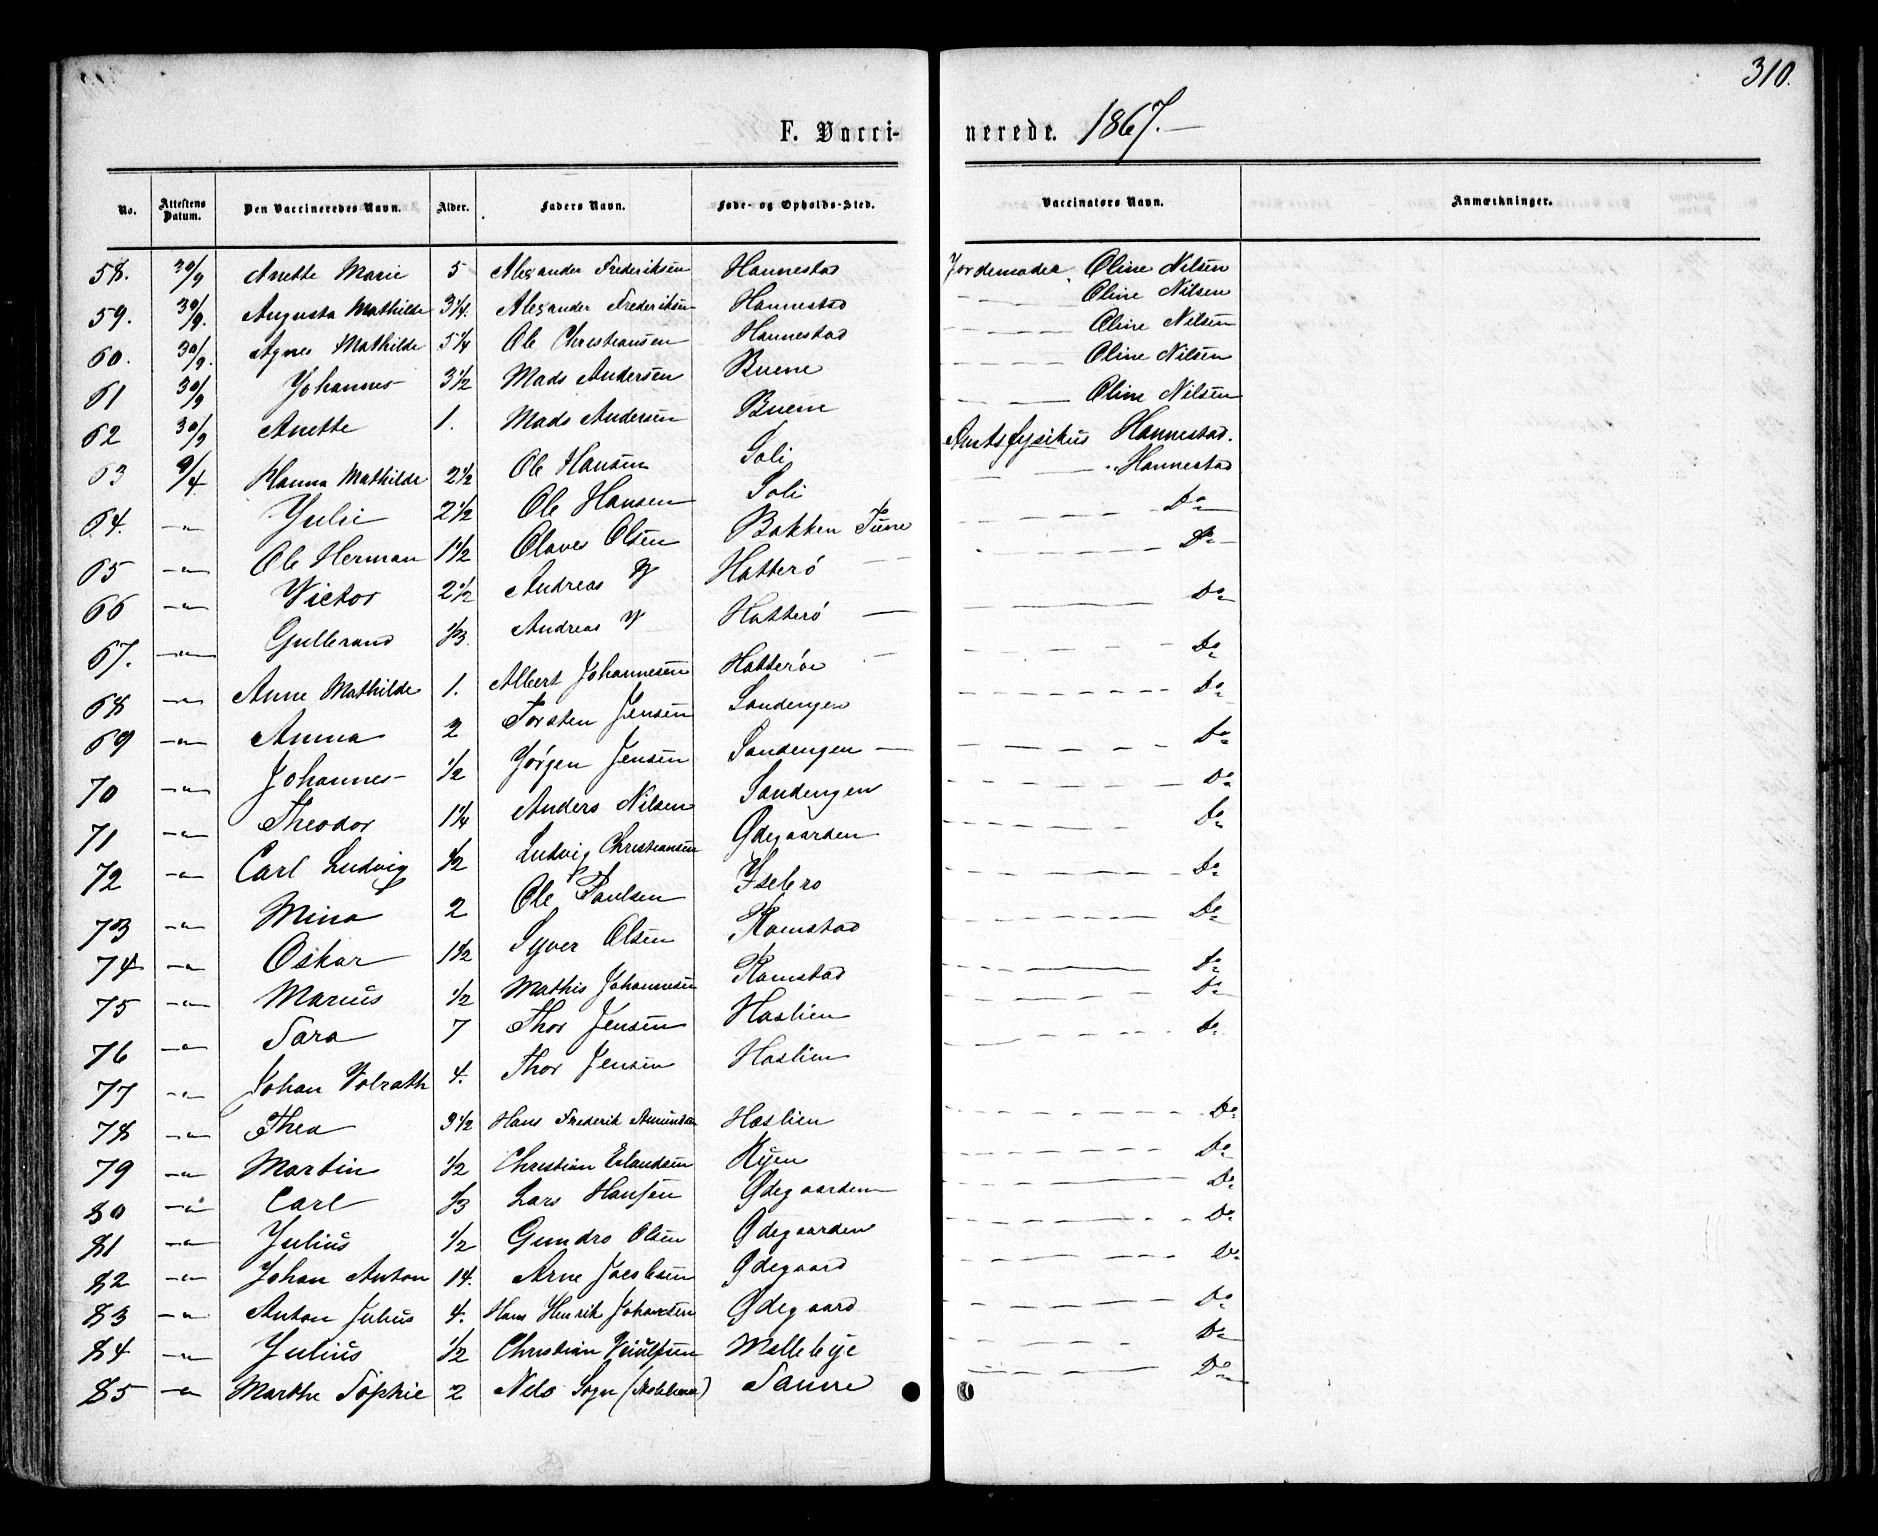 310.
F. Vacci- nerede. 1867.
No. Attestens Datum. Den Vaccineredes Navn. Alder. Faders Navn. Føde- og Opholds-Sted. Vaccinators Navn. Anmærkninger.
58. 30/9 Anette Marie 5 Alexander Frederiksen Hannestad Jordemoder Oline Nilsen
59. 30/9. Augusta Mathilde 3 1/4. Alexander Frederiksen Hannestad — Oline Nilsen
60. 30/9. Agnes Mathilde 5 1/4 Ole Christiansen Hannestad — Oline Nilsen
61 30/9 Johannes 3 1/2 Mads Andersen Buene — Oline Nilsen
62 30/9 Anette 1. Mads Andersen Buene — Oline Nilsen
63 9/4 Hanna Mathilde 2 1/2 Ole Hansen Soli Amtsfysikus Hannestad.
64. —"— Julie 2 1/2 Ole Hansen Soli — Hannestad
65 —"— Ole Herman 1 1/2 Olaves Olsen Bakken Tune — Do
66 —"— Victor 2 1/2 Andreas Hatterö — Do
67. —"— Gullerand 1/3. Andreas Hatterö — Do
68 —"— Anne Mathilde 1. Albert Johannesen Hatterøe — Do
69 —"— Anna 2 Torsten Jensen Sandengen — Do
70 —"— Johannes 1/2 Jørgen Jensen Sandengen — Do
71 —"— Theodor 1 1/4 Anders Nilsen Sandengen — Do
72 —"— Carl Ludvig 1/2 Ludvig Christiansen Ødegaarden — Do
73 —"— Mina 2 Ole Paulsen Isebro — Do
74 —"— Oskar 1 1/2 Syver Olsen Ramstad — Do
75 —"— Marius 1/2 Mathis Johannesen Ramstad — Do
76 —"— Sara 7 Thor Jensen Haslien — Do
77 —"— Johan Volrath 4. Thor Jensen Haslien — Do
78 —"— Thea 3 1/2 Hans Frederik Amundsen Haslien — Do
79 —"— Martin 1/2 Christian Erlandsen Ryen — Do
80 —"— Carl 1/3 Lars Hansen Ødegaarden — Do
81 —"— Julius 1/2 Gundro Olsen Ødegaarden — Do
82 —"— Johan Anton 14. Arne Jacobsen Ødegaard — Do
83 —"— Anton Julius 4. Hans Henrik Johansen Ødegaard — Do
84 —"— Julius 1/2 Christian Mellebye — Do
85 —"— Marthe Sophie 2 Nils Sogn Sanne — Do